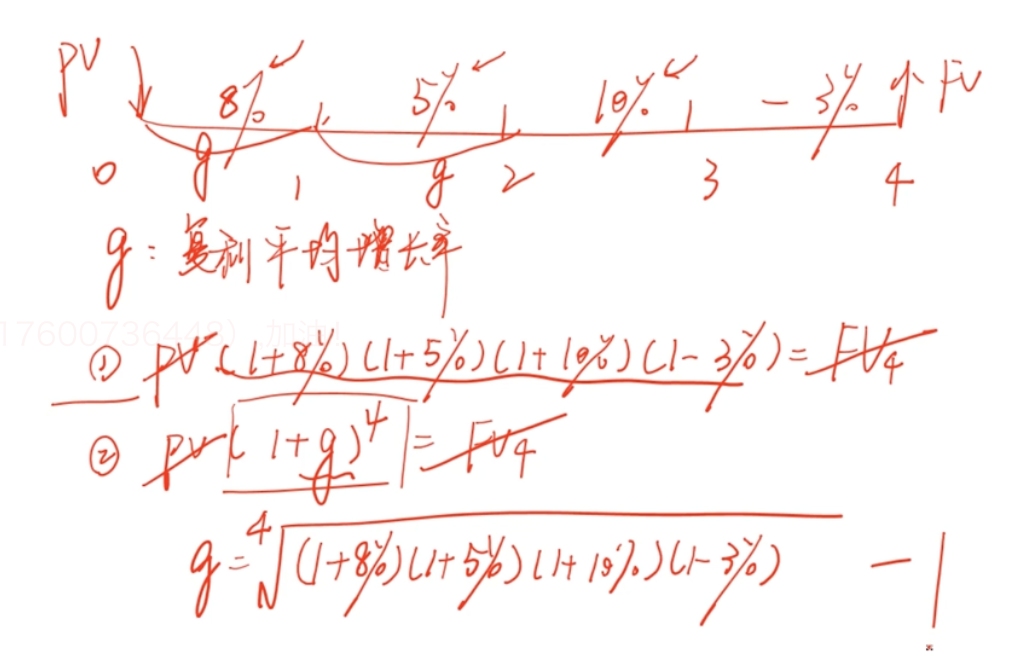 PV 8% 5% 10% -3% FV
g g
0 1 2 3 4
g: 复利平均增长率
17600736448) 加油!
① PV·(1+8%)(1+5%)(1+10%)(1-3%)=FV4
② PV(1+g)^4=FV4
g=4√(1+8%)(1+5%)(1+10%)(1-3%) -1